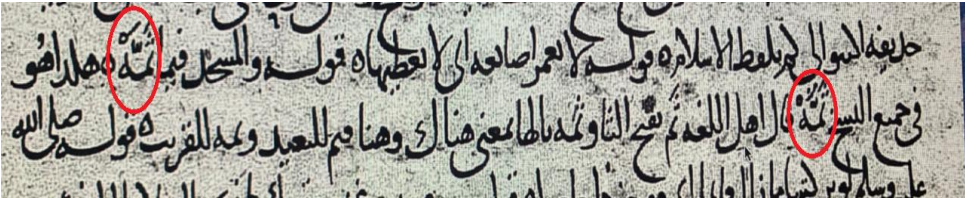 حذيفة اكتبوا لي كم يلفظ الاسلام ه قوله لا يغمر اصابعه اى لا يغطيها ه قوله والمسجد فيما ثَمَّهْ ه هكذا هو
في جميع النسخ ثَمَّهْ قال اهل اللغة ثَم بفتح الثا وثمه بالها بمعنى هناك وهنا فثم للبعيد وثمه للقريب ه قوله صلى الله
عليه وسلم لو تركتيها ما زال